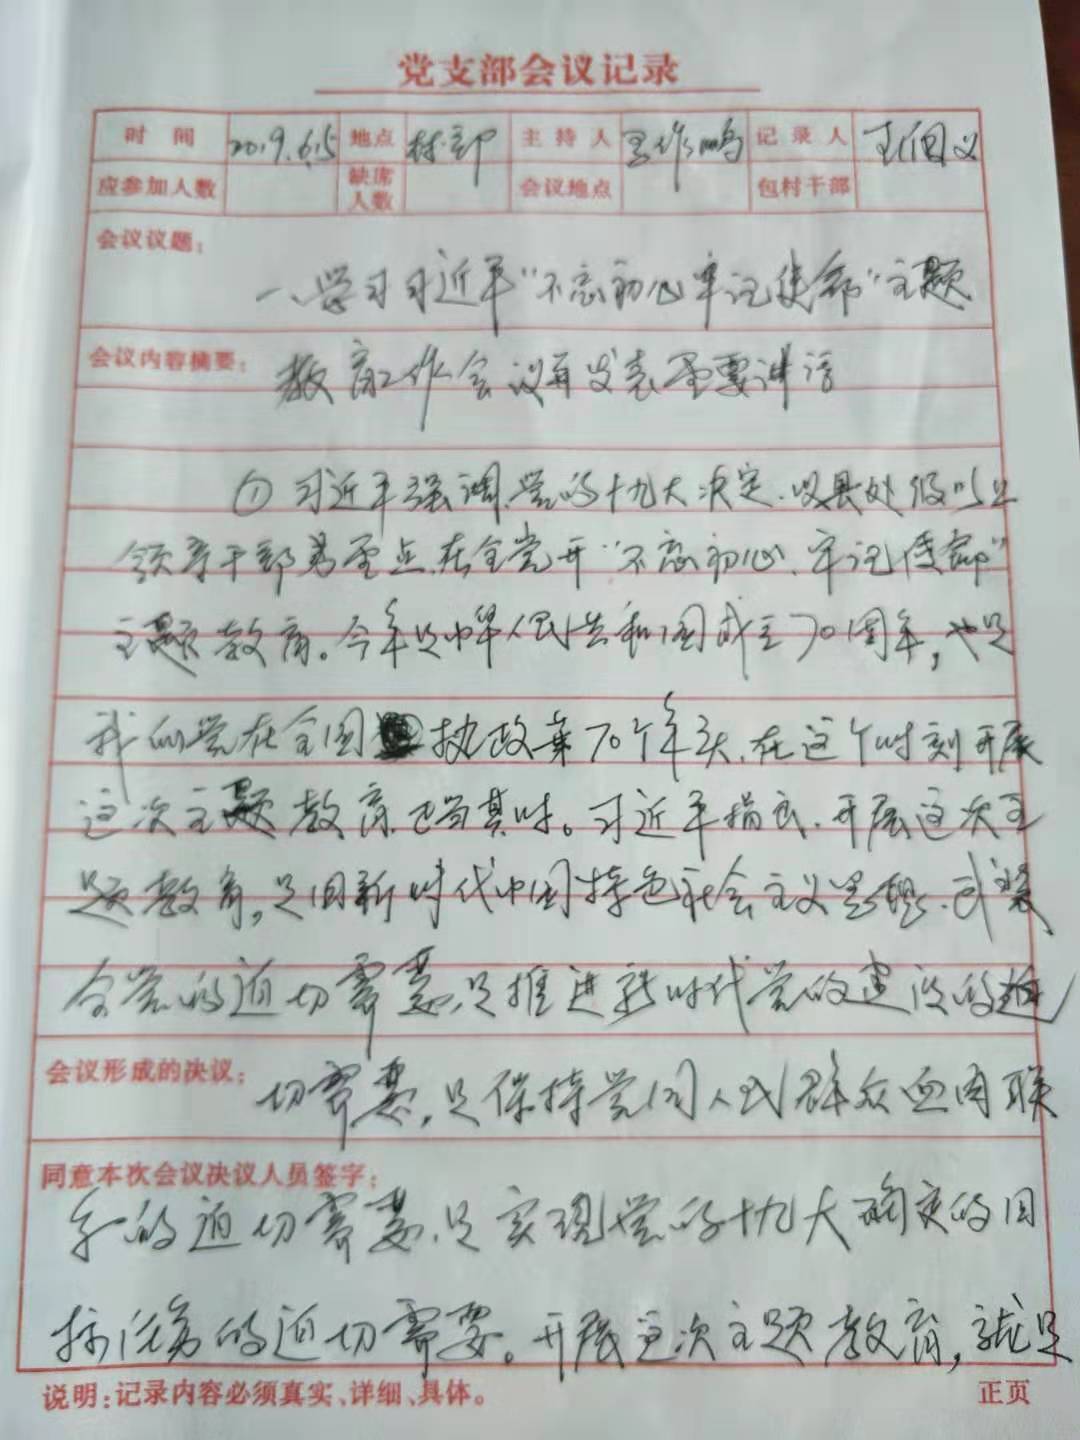 党支部会议记录
时间 2019.6.5 地点 村部 主持人 王作鸣 记录人 王伯义
应参加人数 缺席人数 会议地点 包村干部
会议议题：
一、学习习近平“不忘初心牢记使命”主题
会议内容摘要： 教育工作会议再发表重要讲话
① 习近平强调,党的十九大决定.以县处级以上
领导干部为重点.在全党开“不忘初心、牢记使命”
主题教育。今年是中华人民共和国成立70周年，也是
我们党在全国执政第70个年头.在这个时刻开展
这次主题教育.正当其时。习近平指出.开展这次主
题教育，是用新时代中国特色社会主义思想.武装
全党的迫切需要,是推进新时代党的建设的迫
会议形成的决议： 切需要，是保持党同人民群众血肉联
同意本次会议决议人员签字：
系的迫切需要,是实现党的十九大确定的目
标任务的迫切需要。开展这次主题教育，就是
说明：记录内容必须真实、详细、具体。 正页